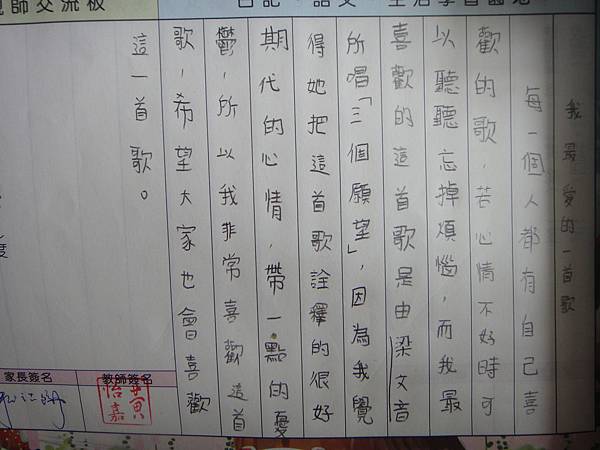 我最愛的一首歌
每一個人都有自己喜
歡的歌，若心情不好時可
以聽聽忘掉煩惱，而我最
喜歡的這首歌是由梁文音
所唱「三個願望」，因為我覺
得她把這首歌詮釋的很好
期代的心情，帶一點的憂
鬱，所以我非常喜歡這首
歌，希望大家也會喜歡
這一首歌。
師交流板
家長簽名
教師簽名
黃怡嘉